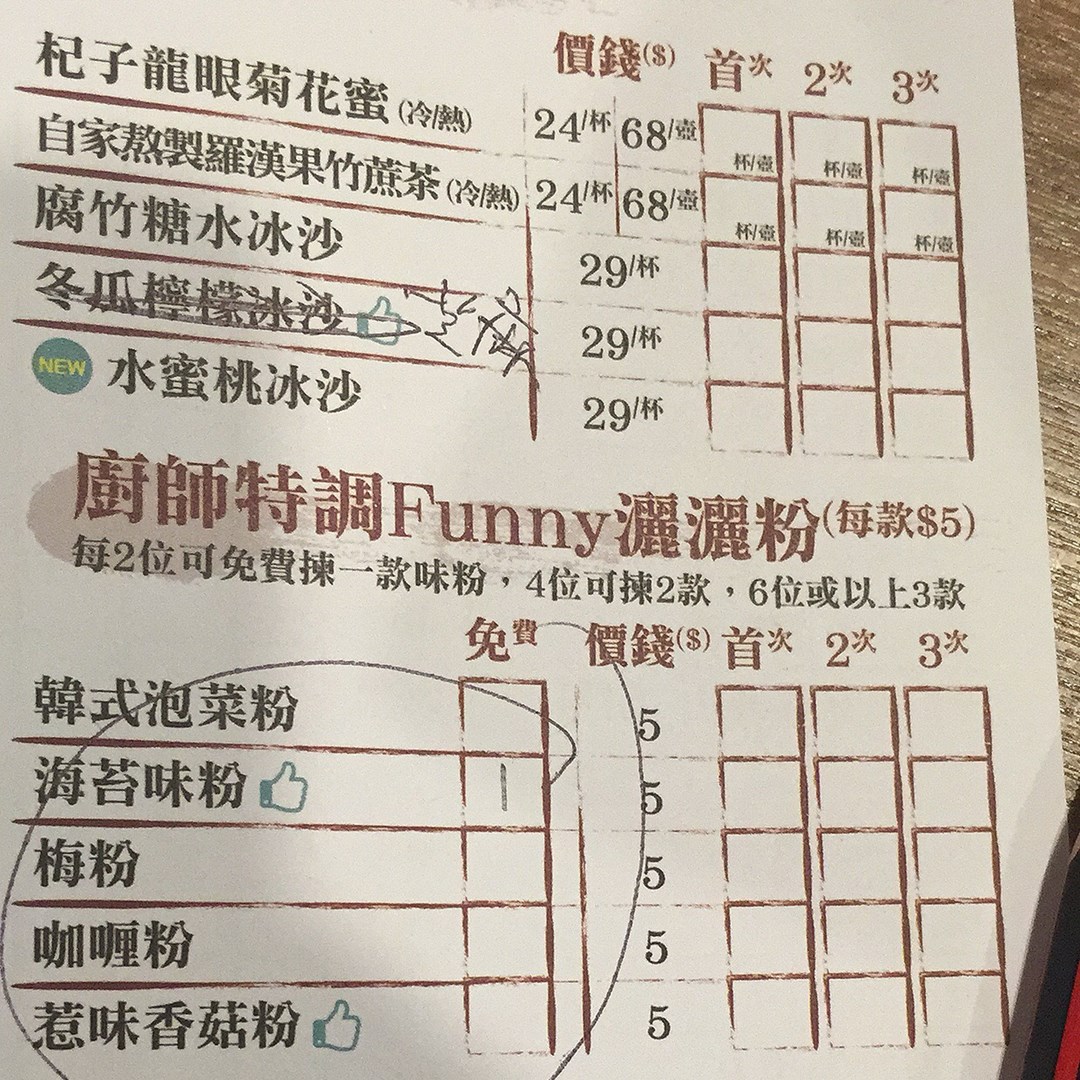 價錢($) 首次 2次 3次
杞子龍眼菊花蜜(冷/熱) 24/杯 68/壺 杯/壺 杯/壺 杯/壺
自家熬製羅漢果竹蔗茶(冷/熱) 24/杯 68/壺 杯/壺 杯/壺 杯/壺
腐竹糖水冰沙 29/杯
冬瓜檸檬冰沙 29/杯
NEW 水蜜桃冰沙 29/杯
廚師特調Funny灑灑粉(每款$5)
每2位可免費揀一款味粉，4位可揀2款，6位或以上3款
免費 價錢($) 首次 2次 3次
韓式泡菜粉 5
海苔味粉 1 5
梅粉 5
咖喱粉 5
惹味香菇粉 5